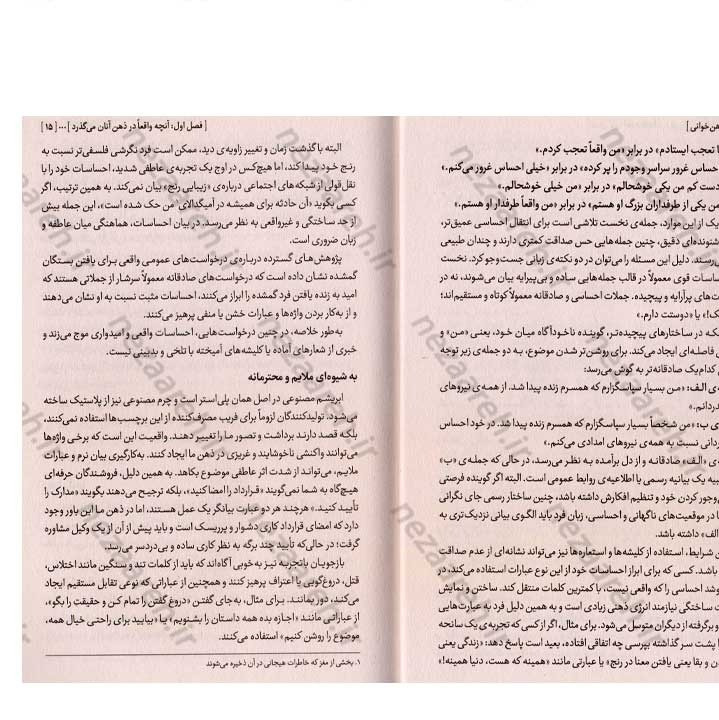 هن‌خوانی ]
ا تعجب ایستادم» در برابر «من واقعاً تعجب کردم.»
حساس غرور سراسر وجودم را پر کرده» در برابر «خیلی احساس غرور می‌کنم.»
دست کم من یکی خوشحالم» در برابر «من خیلی خوشحالم.»
من یکی از طرفداران بزرگ او هستم» در برابر «من واقعاً طرفدار او هستم.»
یک از این موارد، جمله‌ی نخست تلاشی است برای انتقال احساسی عمیق‌تر،
شنونده‌ای دقیق، چنین جمله‌هایی حس صداقت کمتری دارند و چندان طبیعی
رسند. دلیل این مسئله را می‌توان در دو نکته‌ی زبانی جست‌وجو کرد. نخست
ساسات قوی معمولاً در قالب جمله‌هایی ساده و بی‌پیرایه بیان می‌شوند، نه در
ت‌های پرآرایه و پیچیده. جملات احساسی و صادقانه معمولاً کوتاه و مستقیم‌اند؛
ک!» یا «دوستت دارم.»
که در ساختارهای پیچیده‌تر، گوینده ناخودآگاه میان خود، یعنی «من» و
فاصله‌ای ایجاد می‌کند. برای روشن‌تر شدن موضوع، به دو جمله‌ی زیر توجه
کدام‌یک صادقانه‌تر به گوش می‌رسد:
ی الف: «من بسیار سپاسگزارم که همسرم زنده پیدا شد. از همه‌ی نیروهای
دردانم.»
ی ب: «من شخصاً بسیار سپاسگزارم که همسرم زنده پیدا شد. در خود احساس
ردانی نسبت به همه‌ی نیروهای امدادی می‌کنم.»
ی «الف» صادقانه و از دل برآمده به نظر می‌رسد، در حالی که جمله‌ی «ب»
بیه یک بیانیه رسمی یا اطلاعیه‌ی روابط عمومی است. البته اگر گوینده فرصتی
وجور کردن خود و تنظیم افکارش داشته باشد، چنین ساختار رسمی جای نگرانی
ا در موقعیت‌های ناگهانی و احساسی، زبان فرد باید الگوی بیانی نزدیک‌تری به
الف» داشته باشد.
ن شرایط، استفاده از کلیشه‌ها و استعاره‌ها نیز می‌تواند نشانه‌ای از عدم صداقت
باشد. کسی که برای ابراز احساسات خود از این نوع عبارات استفاده می‌کند، در
وشد احساسی را که واقعی نیست، با کمترین کلمات منتقل کند. ساختن و نمایش
ت ساختگی نیازمند انرژی ذهنی زیادی است و به همین دلیل فرد به عبارت‌هایی
و برگرفته از دیگران متوسل می‌شود. برای مثال، اگر از کسی که تجربه‌ی یک سانحه
ا پشت سر گذاشته بپرسی چه اتفاقی افتاده، بعید است پاسخ دهد: «زندگی یعنی
ن و بقا یعنی یافتن معنا در رنج» یا عبارتی مانند «همینه که هست، دنیا همینه!»
[ فصل اول: آنچه واقعاً در ذهن آنان می‌گذرد ] ... [ ۱۵ ]
البته با گذشت زمان و تغییر زاویه‌ی دید، ممکن است فرد نگرشی فلسفی‌تر نسبت به
رنج خود پیدا کند، اما هیچ‌کس در اوج یک تجربه‌ی عاطفی شدید، احساسات خود را با
نقل‌قولی از شبکه‌های اجتماعی درباره‌ی «زیبایی رنج» بیان نمی‌کند. به همین ترتیب، اگر
کسی بگوید «آن حادثه برای همیشه در آمیگدالای۱ من حک شده است»، این جمله بیش
از حد ساختگی و غیرواقعی به نظر می‌رسد. در بیان احساسات، هماهنگی میان عاطفه و
زبان ضروری است.
پژوهش‌های گسترده درباره‌ی درخواست‌های عمومی واقعی برای یافتن بستگان
گمشده نشان داده است که درخواست‌های صادقانه معمولاً سرشار از جملاتی هستند که
امید به زنده یافتن فرد گمشده را ابراز می‌کنند، احساسات مثبت نسبت به او نشان می‌دهند
و از به‌کار بردن واژه‌ها و عبارات خشن یا منفی پرهیز می‌کنند.
به‌طور خلاصه، در چنین درخواست‌هایی، احساسات واقعی و امیدواری موج می‌زند و
خبری از شعارهای آماده یا کلیشه‌های آمیخته با تلخی و بدبینی نیست.
به شیوه‌ای ملایم و محترمانه
ابریشم مصنوعی در اصل همان پلی‌استر است و چرم مصنوعی نیز از پلاستیک ساخته
می‌شود. تولیدکنندگان لزوماً برای فریب مصرف‌کننده از این برچسب‌ها استفاده نمی‌کنند،
بلکه قصد دارند برداشت و تصور ما را تغییر دهند. واقعیت این است که برخی واژه‌ها
می‌توانند واکنشی ناخوشایند و غریزی در ذهن ما ایجاد کنند. به‌کارگیری بیان نرم و عبارات
ملایم، می‌تواند از شدت اثر عاطفی موضوع بکاهد. به همین دلیل، فروشندگان حرفه‌ای
هیچ‌گاه به شما نمی‌گویند «قرارداد را امضا کنید»، بلکه ترجیح می‌دهند بگویند «مدارک را
تأیید کنید.» هرچند هر دو عبارت بیانگر یک عمل هستند، اما در ذهن ما این باور وجود
دارد که امضای قرارداد کاری دشوار و پرریسک است و باید پیش از آن از یک وکیل مشاوره
گرفت؛ در حالی‌که تأیید چند برگه به نظر کاری ساده و بی‌دردسر می‌رسد.
بازجویان باتجربه نیز به خوبی آگاه‌اند که باید از کلمات تند و سنگین مانند اختلاس،
قتل، دروغ‌گویی یا اعتراف پرهیز کنند و همچنین از عباراتی که نوعی تقابل مستقیم ایجاد
می‌کند، دور بمانند. برای مثال، به‌جای گفتن «دروغ گفتن را تمام کن و حقیقت را بگو»،
از عباراتی مانند «اجازه بده همه داستان را بشنویم» یا «بیایید برای راحتی خیال همه،
موضوع را روشن کنیم» استفاده می‌کنند.
۱. بخشی از مغز که خاطرات هیجانی در آن ذخیره می‌شوند
nezaareh.ir